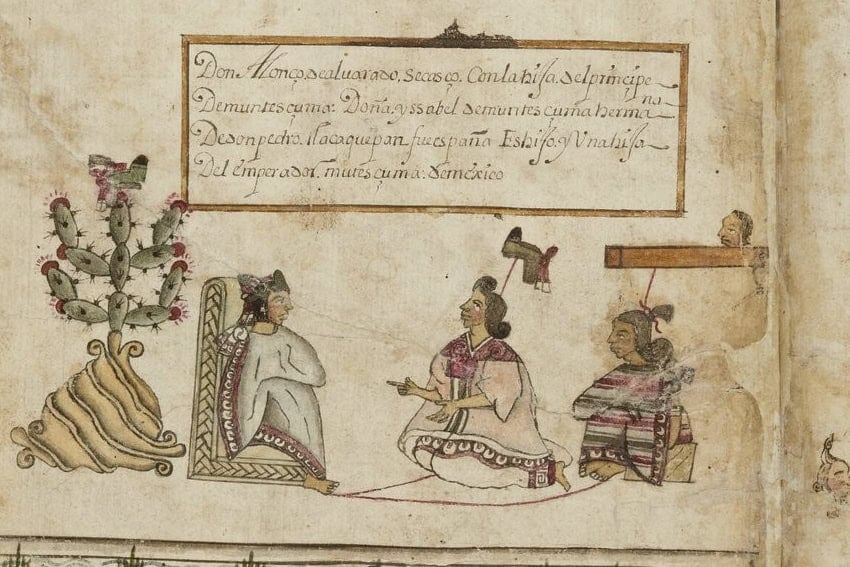 Don Alonço. de alvarado. se casço. Con la hija. del prinçipe
De muntesçuma: Doña. yssabel de muntesçuma herma na
De don pedro. tlacaquepan fue españa Es hijo. y Vna hija
Del emperador. mutesçuma: de mexico